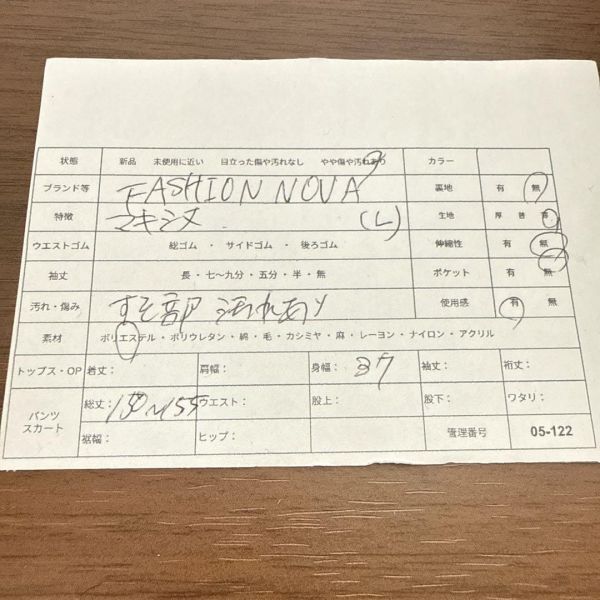 状態 新品 未使用に近い 目立った傷や汚れなし やや傷や汚れあり カラー
ブランド等 FASHION NOVA 裏地 有 無
特徴 マキシ丈 (L) 生地 厚 普 薄
ウエストゴム 総ゴム ・ サイドゴム ・ 後ろゴム 伸縮性 有 無
袖丈 長・七〜九分・五分・半・無 ポケット 有 無
汚れ・傷み すそ部 汚れあり 使用感 有 無
素材 ポリエステル・ポリウレタン・綿・毛・カシミヤ・麻・レーヨン・ナイロン・アクリル
トップス・OP 着丈: 肩幅: 身幅: 37 袖丈: 裄丈:
パンツ スカート 総丈: 150〜155 ウエスト: 股上: 股下: ワタリ:
裾幅: ヒップ: 管理番号 05-122